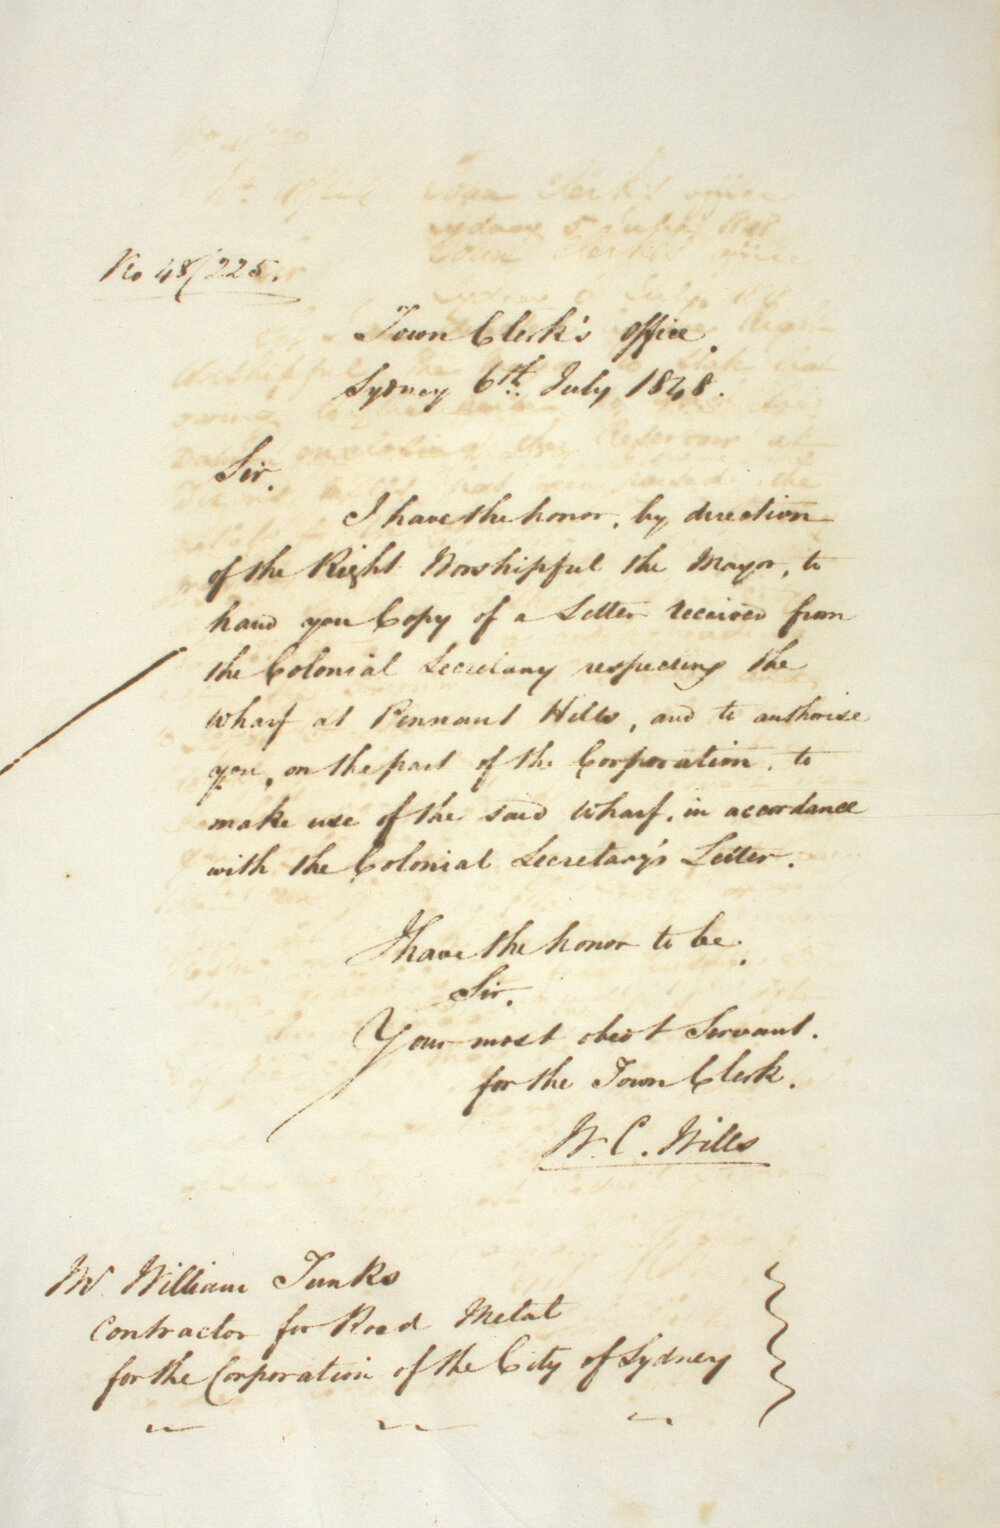 No 48/225.
Town Clerk's Office,
Sydney 6th. July 1848.
Sir,
I have the honor, by direction
of the Right Worshipful the Mayor, to
hand you Copy of a Letter received from
the Colonial Secretary respecting the
Wharf at Pennant Hills, and to authorise
you, on the part of the Corporation, to
make use of the said Wharf, in accordance
with the Colonial Secretary's Letter.
I have the honor to be,
Sir,
Your most obedt Servant.
for the Town Clerk.
W. C. Wills
Mr William Tunks
Contractor for Road Metal
for the Corporation of the City of Sydney